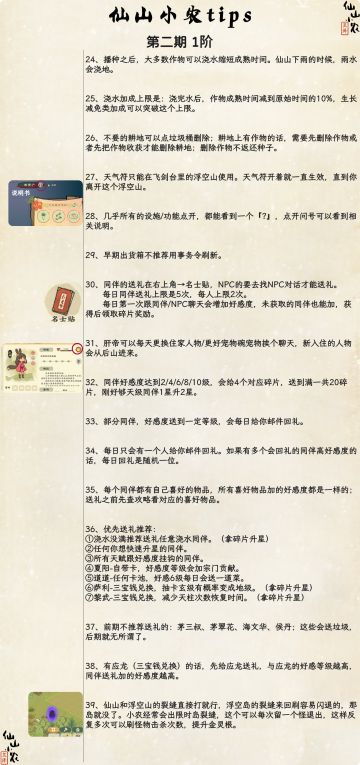 仙山小农tips
仙山小农
第二期 1阶
24、播种之后，大多数作物可以浇水缩短成熟时间。仙山下雨的时候，雨水
会浇地。
25、浇水加成上限是：浇完水后，作物成熟时间减到原始时间的10%，生长
减免类加成可以突破这个上限。
26、不要的耕地可以点垃圾桶删除；耕地上有作物的话，需要先删除作物或
者先把作物收获才能删除耕地；删除作物不返还种子。
27、天气符只能在飞剑台里的浮空山使用。天气符开着就一直生效，直到你
离开这个浮空山。
说明书
28、几乎所有的设施/功能点开，都能看到一个『?』，点开问号可以看到相
关说明。
29、早期出货箱不推荐用事务令刷新。
30、同伴的送礼在右上角→名士贴，NPC的要去找NPC对话才能送礼。
每日同伴送礼上限是5次，每人上限2次。
每日第一次跟同伴/NPC聊天会增加好感度，未获取的同伴也能加，获
得后领取碎片奖励。
名士贴
31、肝帝可以每天更换住家人物/更好宠物碗宠物挨个聊天，新入住的人物
会从后山进来。
32、同伴好感度达到2/4/6/8/10级，会给4个对应碎片，送到满一共20碎
片，刚好够天级同伴1星升2星。
33、部分同伴，好感度送到一定等级，会每日给你邮件回礼。
34、每日只会有一个人给你邮件回礼。如果有多个会回礼的同伴高好感度的
话，每日回礼是随机一位。
35、每个同伴都有自己喜好的物品，所有喜好物品加的好感度都是一样的；
送礼之前先查攻略看对应的喜好物品。
36、优先送礼推荐：
①浇水没满推荐送礼任意浇水同伴。（拿碎片升星）
②任何你想快速升星的同伴。
③所有天赋跟好感度挂钩的同伴。
④夏阳-自带卡，好感度等级会加宗门贡献。
⑤道道-任何卡池，好感6级每日会送一道菜。
⑥萨利-三宝钱兑换，抽卡玄级有概率变成地级。（拿碎片升星）
⑦黎武-三宝钱兑换，减少天柱次数恢复时间。（拿碎片升星）
37、前期不推荐送礼的：茅三叔、茅翠花、海文华、侯丹；这些会送垃圾，
后期就无所谓了。
38、有应龙（三宝钱兑换）的话，先给应龙送礼，与应龙的好感等级越高，
同伴送礼加的好感度越高。
39、仙山和浮空山的裂缝直接打就行，浮空岛的裂缝来回刷容易闪退的，那
岛就没了。小农经常会出限时岛裂缝，这个可以每次留一个怪退出，这样反
复多次可以刷怪物击杀次数，提升金灵根。
仙山小农